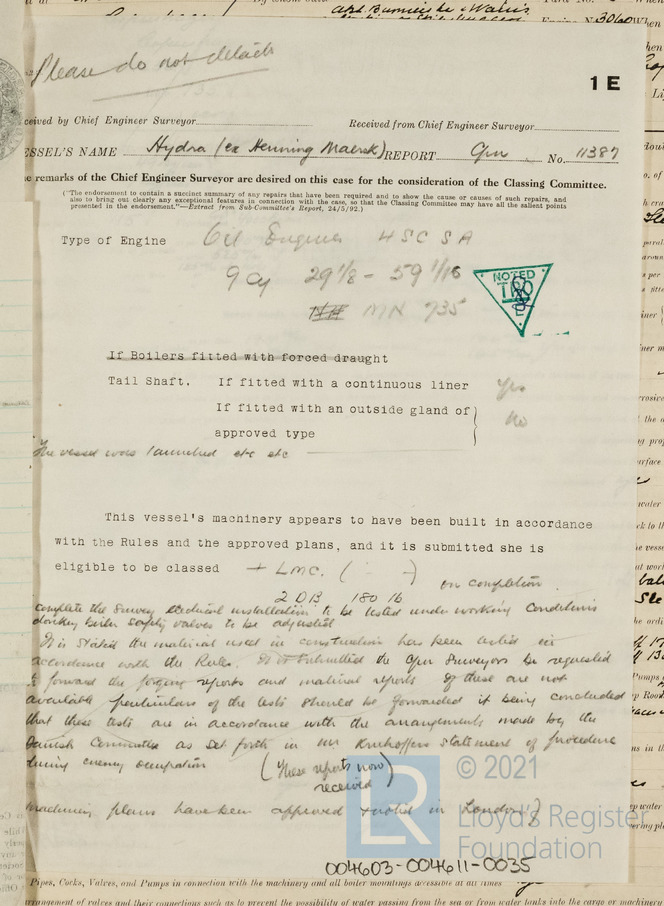 Please do not detach
1 E
ceived by Chief Engineer Surveyor
Received from Chief Engineer Surveyor
ESSEL'S NAME Hydra (ex Henning Maersk) REPORT Cpn No. 11387
e remarks of the Chief Engineer Surveyor are desired on this case for the consideration of the Classing Committee.
("The endorsement to contain a succinct summary of any repairs that have been required and to show the cause or causes of such repairs, and
also to bring out clearly any exceptional features in connection with the case, so that the Classing Committee may have all the salient points
presented in the endorsement."—Extract from Sub-Committee's Report, 24/5/92.)
Type of Engine Oil Engines 4SC SA
9 Cy 29 1/8 - 59 1/16
MN 735
NOTED
If Boilers fitted with forced draught
Tail Shaft. If fitted with a continuous liner Yes
If fitted with an outside gland of
approved type No
The vessel was launched etc etc
This vessel's machinery appears to have been built in accordance
with the Rules and the approved plans, and it is submitted she is
eligible to be classed + LMC. ( ) on completion
2 DB 180 lb
complete the survey electrical installation to be tested under working conditions
donkey boiler safety valves to be adjusted
It is stated the material used in construction has been tested in
accordance with the Rules. It is submitted the Cpn Surveyors be requested
to forward the forging reports and material reports if these are not
available particulars of the tests should be forwarded it being concluded
that these tests are in accordance with the arrangements made by the
Danish Committee as set forth in Mr Knuhoffers statement of procedure
during enemy occupation (These reports now
received)
Machinery plans have been approved in London
© 2021
LR
Lloyd's Register
Foundation
004603-004611-0035
Pipes, Cocks, Valves, and Pumps in connection with the machinery and all boiler mountings accessible at all times
rrangement of valves and their connections such as to prevent the possibility of water passing from the sea or from water tanks into the cargo or machinery